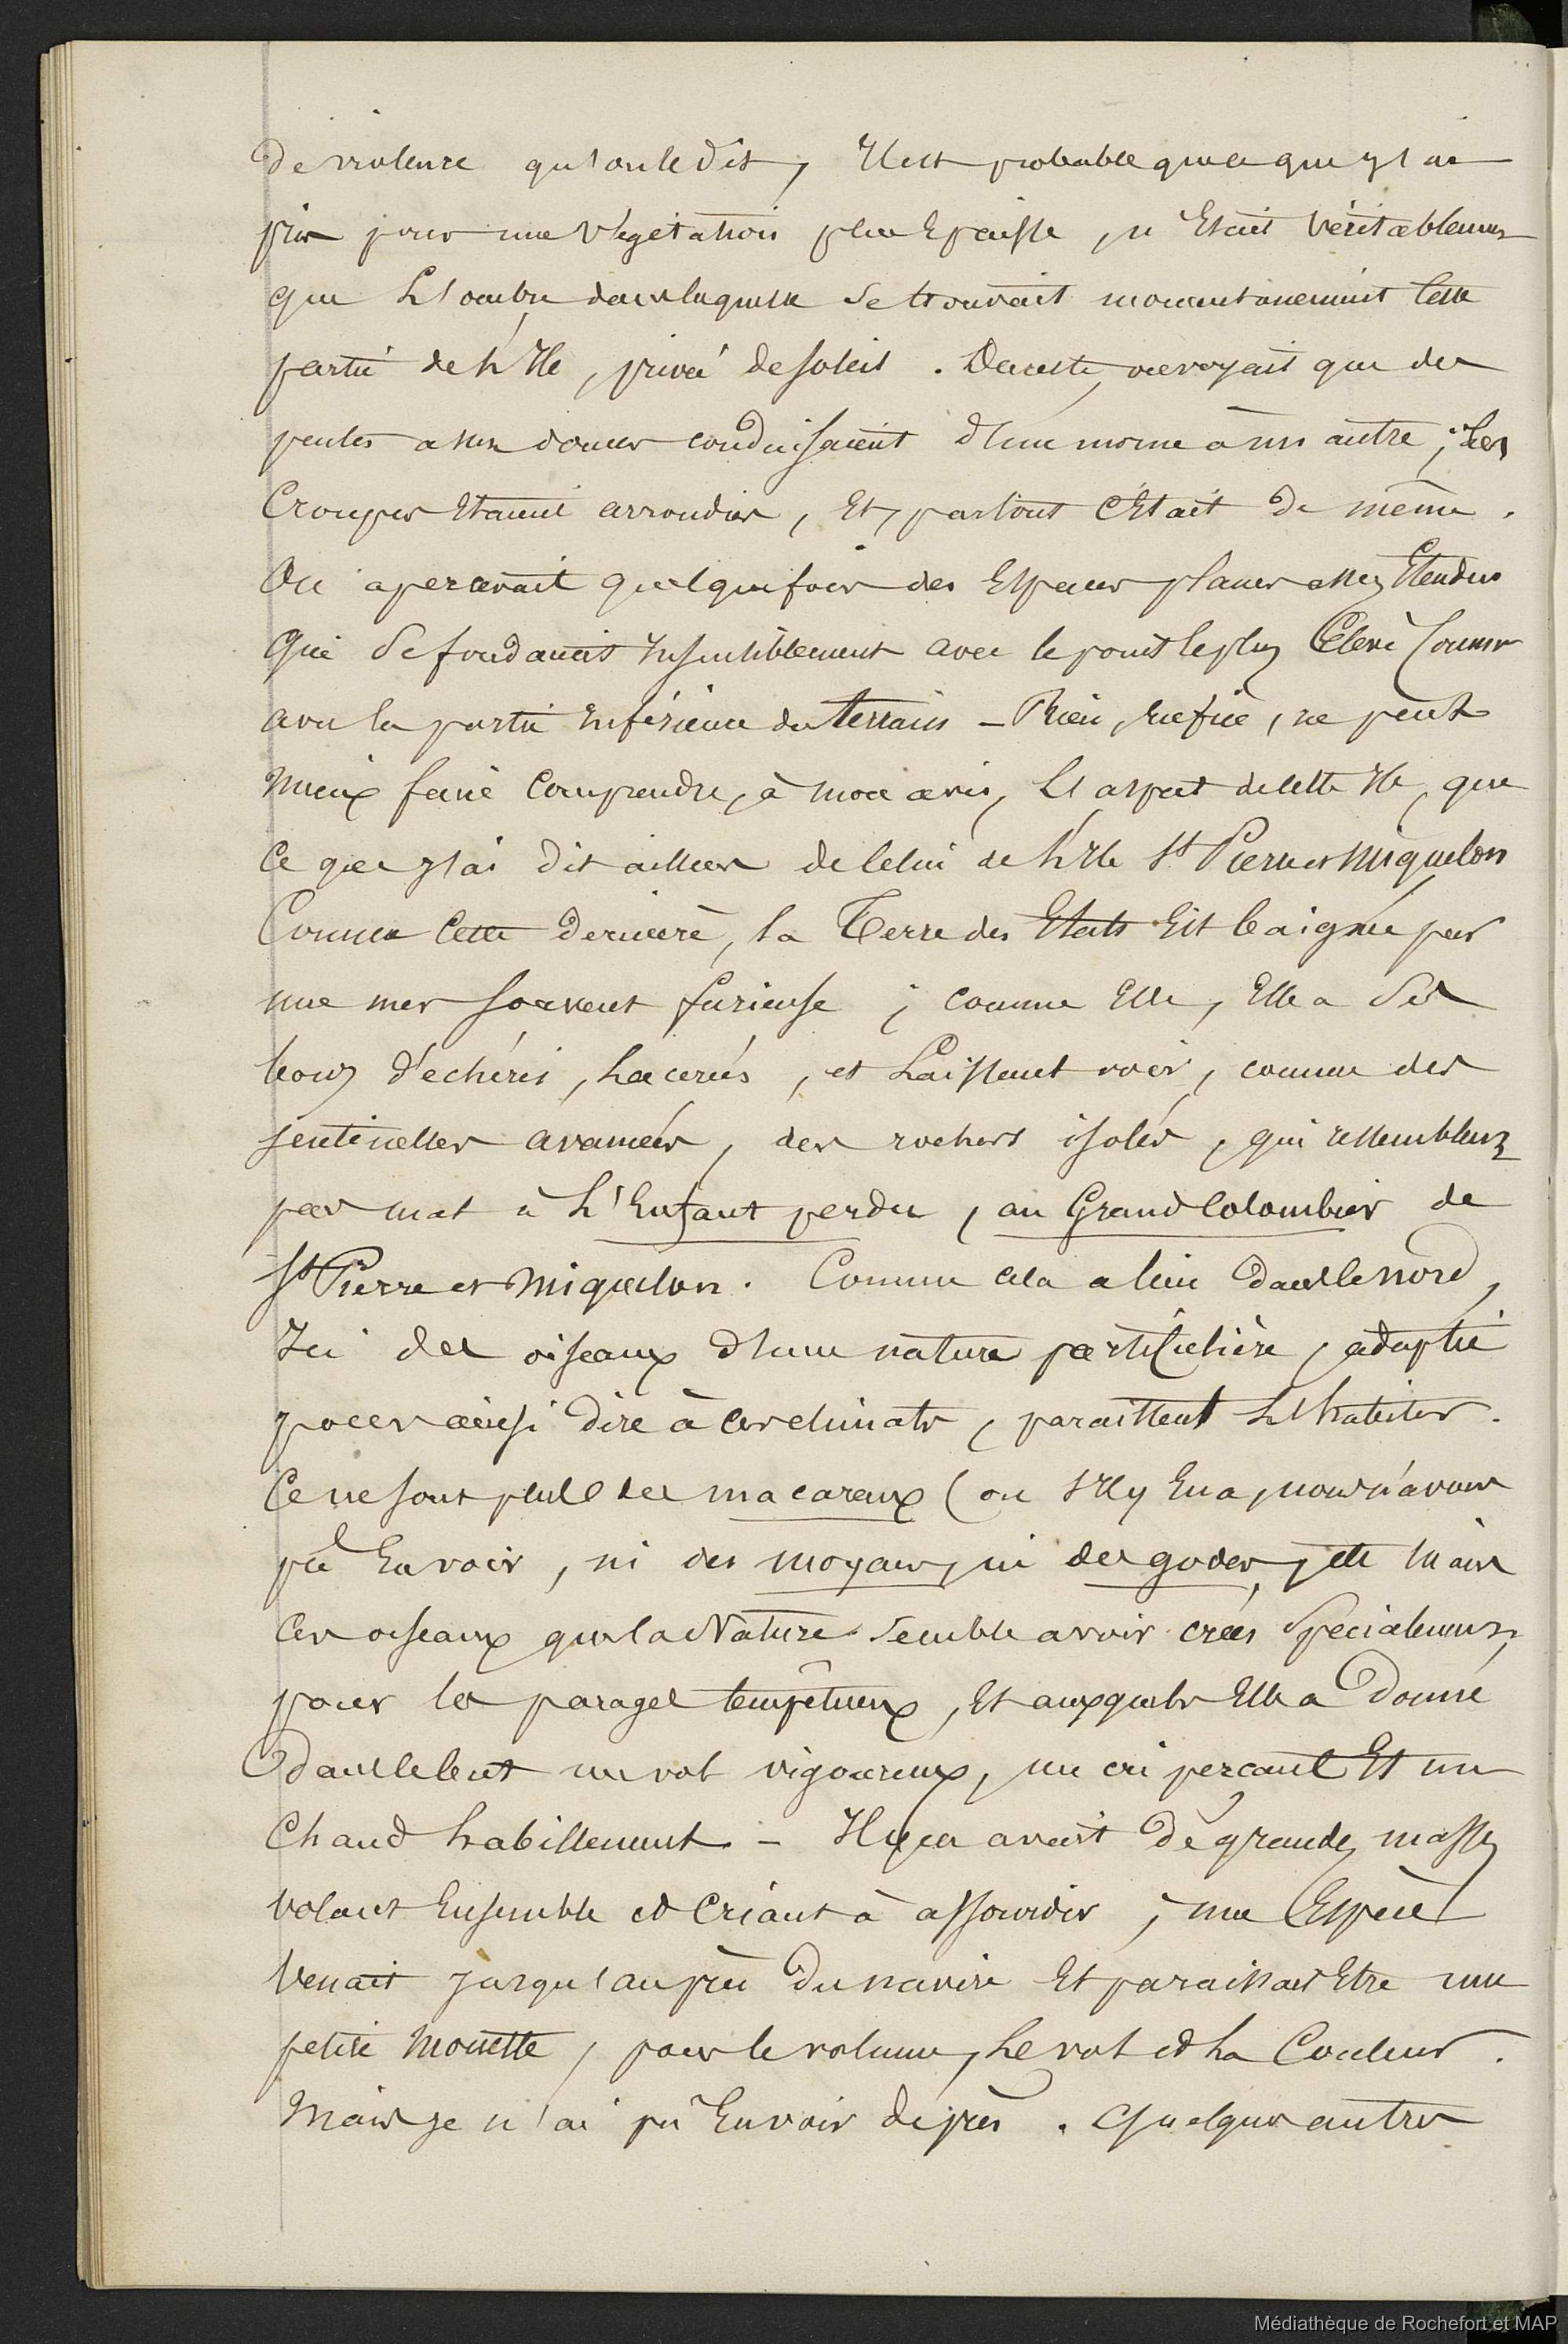 de violence qu'on le dit, Il est probable que ce que j'ai
pris pour une végétation plus épaisse, n'était véritablement
que l'ombre dans laquelle se trouvait momentanement cette
partie de l'Ile, privée de soleil. Du reste, on voyait que des
pentes assez douces conduisaient d'un morne à un autre; les
croupes étaient arrondies, Et, partout c'était de même.
On apercevait quelquefois des Espaces planes assez Etendus
qui se fondaient insensiblement avec le point le plus Elevé comme
avec la partie inférieure du terrain – Rien, enfin, ne peut
mieux faire comprendre, à mon avis, l'aspect de cette Ile, que
ce que j'ai dit ailleurs de celui de l'Ile St Pierre et Miquelon
Comme cette dernière, la Terre des Etats Est baignée par
une mer souvent furieuse; comme Elle, Elle a ses
bouts déchirés, lacérés, et laissent voir, comme des
sentinelles avancées, des rochers isolés, qui ressemblent
pas mal à l'Enfant perdu, au Grand Colombier de
St Pierre et Miquelon. Comme cela a lieu dans le nord,
Ici des oiseaux d'une nature particulière, adaptée
pour ainsi dire à ces climats, paraissent l'habiter.
Ce ne sont plus des macareux (ou s'Il y En a, nous n'avons
pû En voir, ni des moyacs, ni des godes, etc Mais
ces oiseaux que la Nature semble avoir créés spécialement
pour les parages tempêtueux, Et auxquels Elle a donné
dans le but un vol vigoureux, un cri perçant Et un
chaud habillement. – Il y en avait de grandes masses
volant Ensemble et criant à assourdir; une Espèce
venait jusqu'auprès du navire Et paraissait Etre une
petite mouette, pour le volume, le vol et la Couleur.
Mais je n'ai pû En voir de près. Quelques autres
Médiathèque de Rochefort et MAP